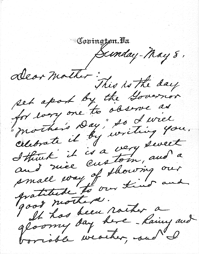 Covington, Va
Sunday - May 8.
Dear Mother:
This is the day
set apart by the Governor
for every one to observe as
"Mother's Day," so I will
celebrate it by writing you.
I think it is a very sweet
and nice custom, and a
small way of showing our
gratitude to our kind and
good mothers.
It has been rather a
gloomy day here - Rainy and
variable weather, and I